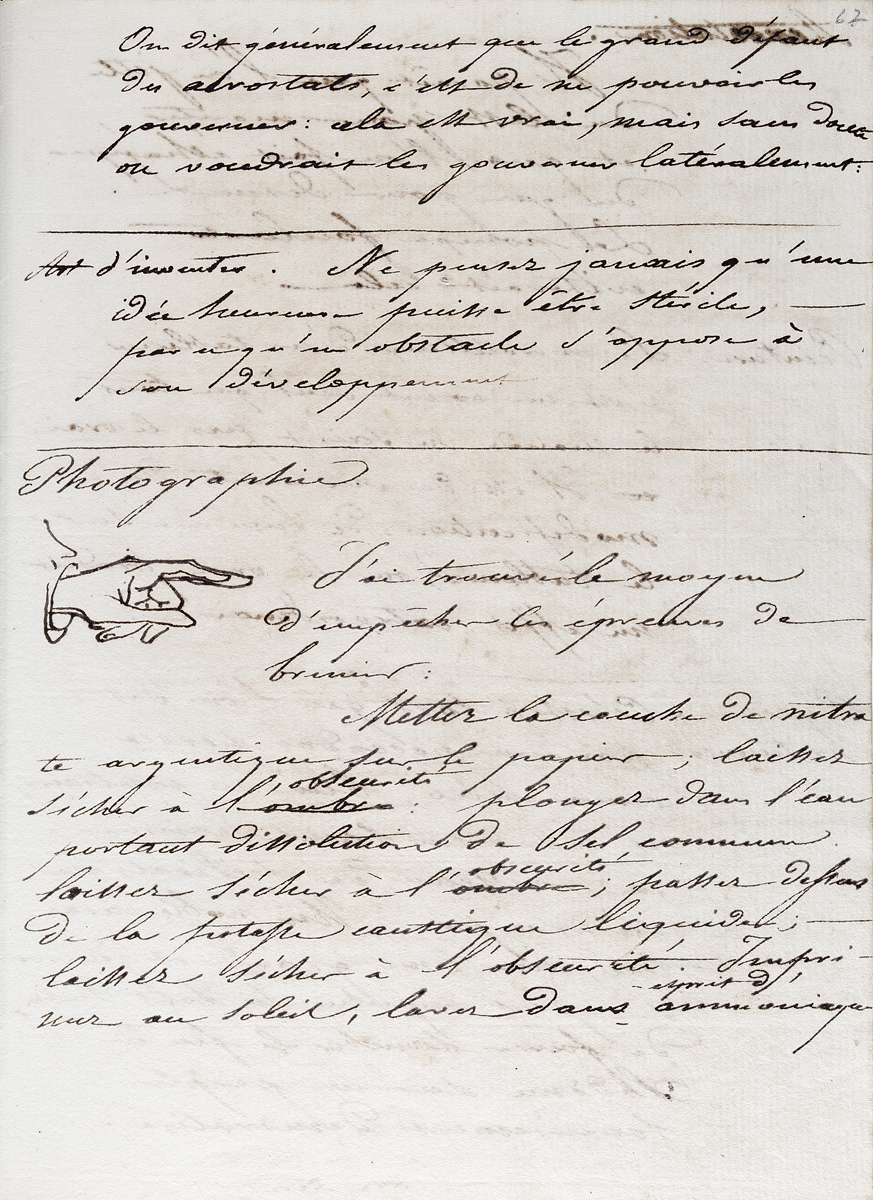 67
On dit généralement que le grand défaut
des aerostats, c'est de ne pouvoir les
gouverner: cela est vrai, mais sans doute
on voudrait les gouverner latéralement:
Art d'inventer. Ne pensez jamais qu'une
idée heureuse puisse être stérile, —
par ce qu'un obstacle s'oppose à
son développement
Photographie.
J'ai trouvé le moyen
d'empêcher les épreuves de —
brunir:
Mettez la couche de nitra
te argentique sur le papier; laissez
obscurité
sécher à l'ombre: plongez dans l'eau
portant dissolution de sel commun.
obscurité
laissez sécher à l'ombre; passez dessus
de la potasse caustique liquide; —
laissez sécher à l'obscurité. Impri-
esprit d'
mez au soleil, lavez dans ammoniaque